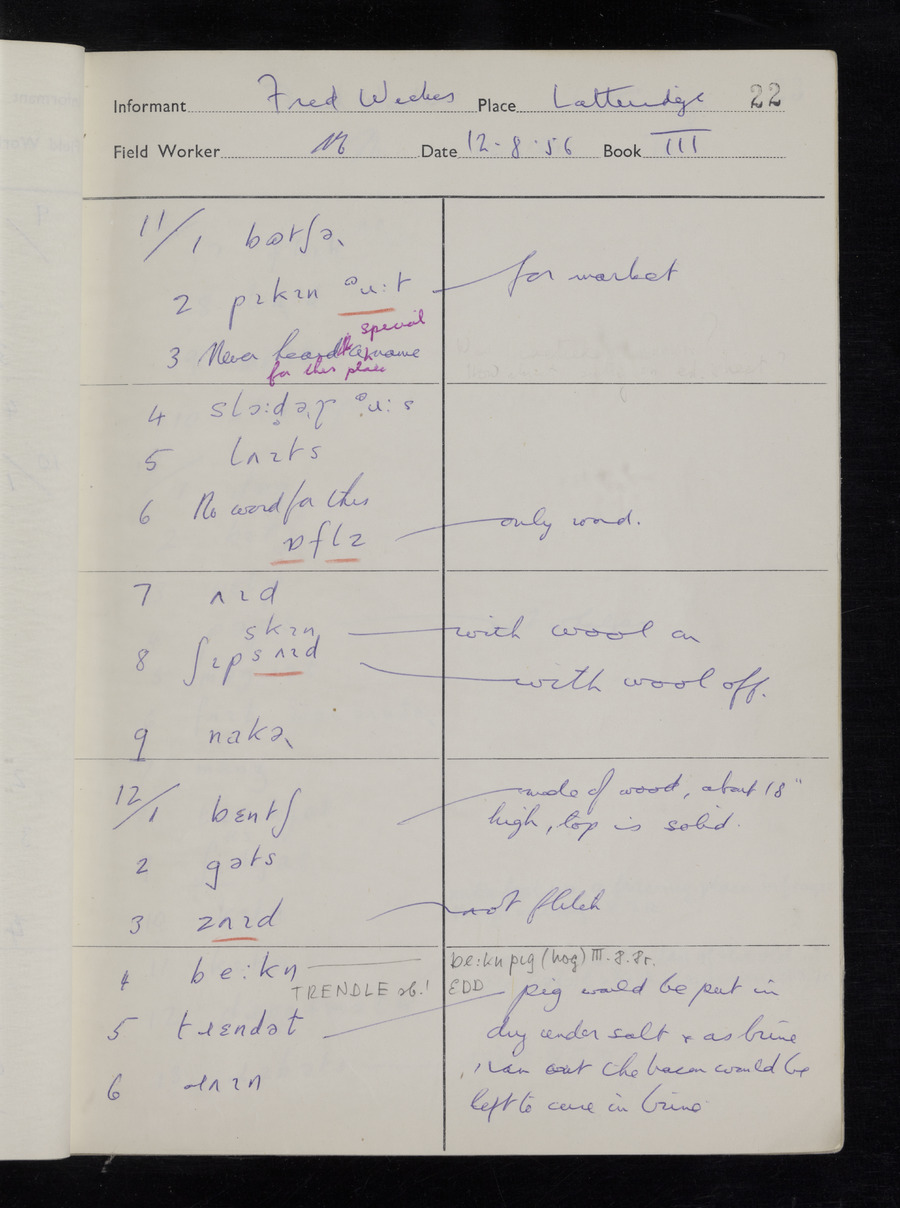 Informant Fred Weekes Place Latteridge 22
Field Worker Date 12·8·56 Book III
11/1
2 for market
3 Never heard a special name
for this place
4
5
6 No word for this
ɒflɪ only word.
7 ʌɪd
skɪn with wool on
8 ʃɪpsʌɪd with wool off.
9 nakə
12/1 bɛntʃ made of wood, about 18"
high, top is solid.
2 gəts
3 zʌɪd not flitch
4 be:kn be:kn pɪg (hog) III.8.8r.
TRENDLE sb.¹ EDD pig would be put in
5 dry under salt & as brine
ran out the bacon would be
6 left to cure in brine